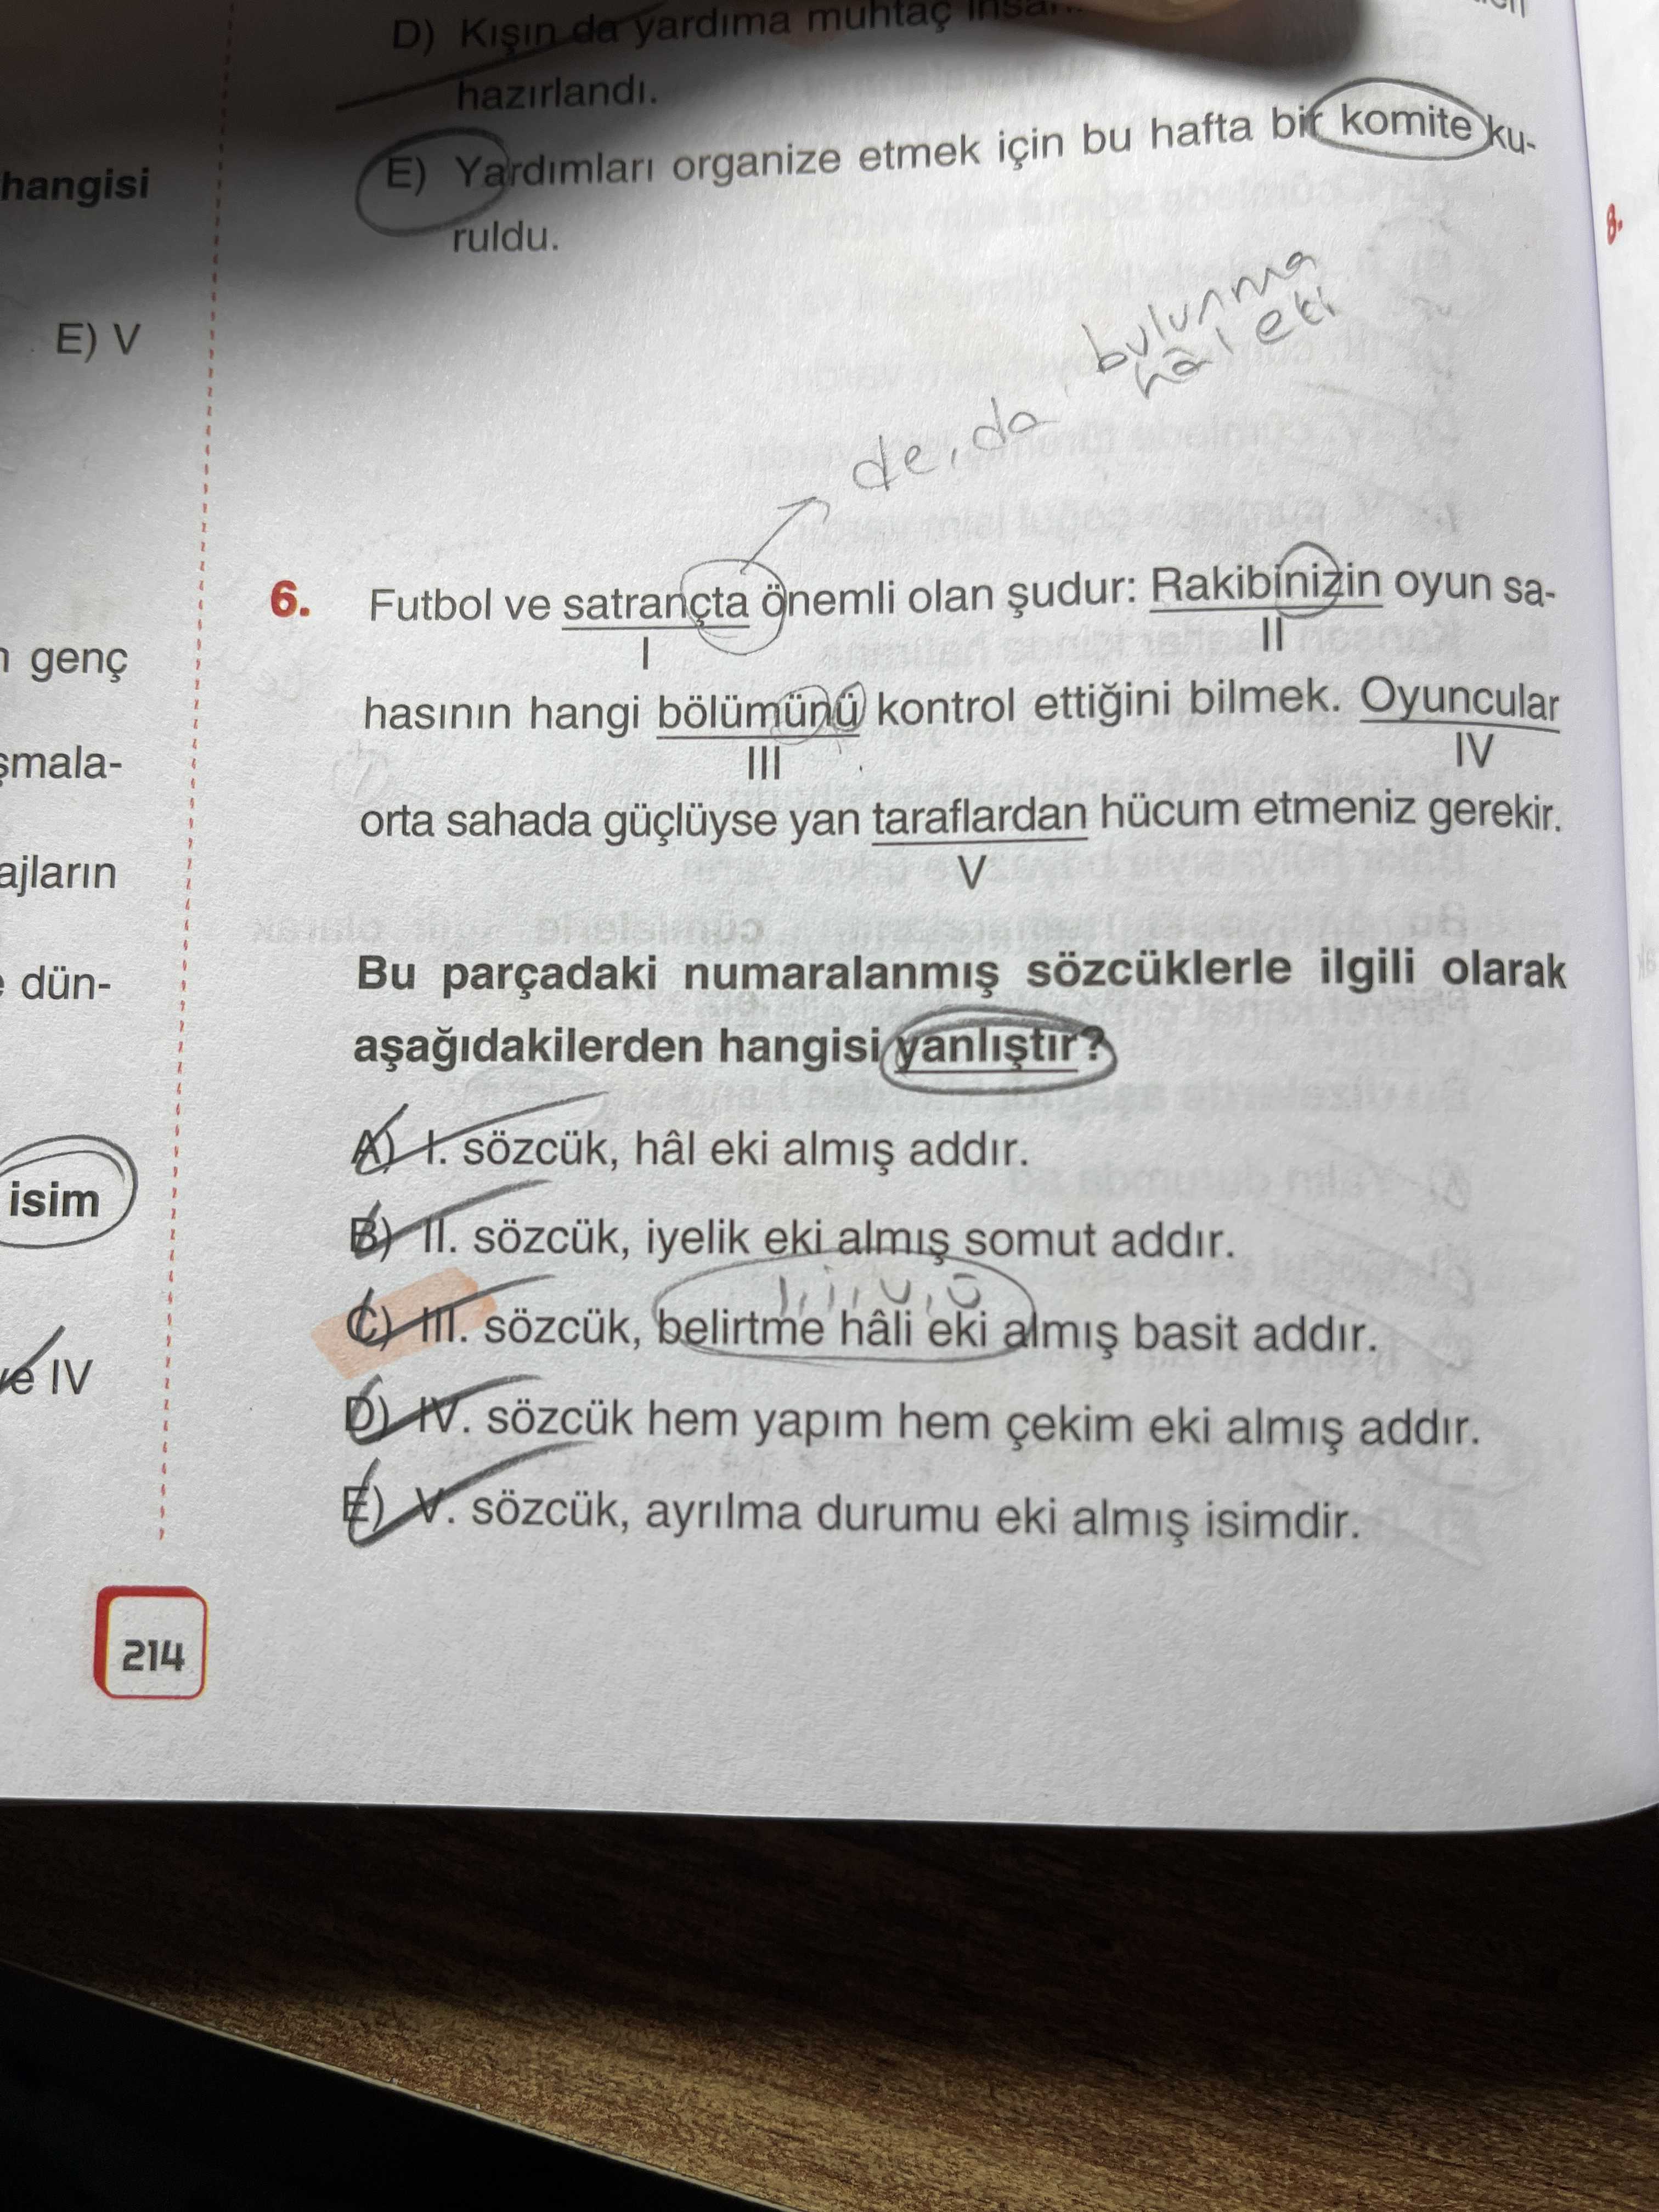 D) Kışın da yardıma muhtaç
hazırlandı.
E) Yardımları organize etmek için bu hafta bir komite ku-
ruldu.
hangisi
E) V
genç
şmala-
ajların
dün-
isim
ve IV
8.
bulunma
hâl eki
de, da
6. Futbol ve satrançta önemli olan şudur: Rakibinizin oyun sa-
I II
hasının hangi bölümünü kontrol ettiğini bilmek. Oyuncular
III IV
orta sahada güçlüyse yan taraflardan hücum etmeniz gerekir.
V
Bu parçadaki numaralanmış sözcüklerle ilgili olarak
aşağıdakilerden hangisi yanlıştır?
A) I. sözcük, hâl eki almış addır.
B) II. sözcük, iyelik eki almış somut addır.
ı, i, u, ü
C) III. sözcük, belirtme hâli eki almış basit addır.
D) IV. sözcük hem yapım hem çekim eki almış addır.
E) V. sözcük, ayrılma durumu eki almış isimdir.
214